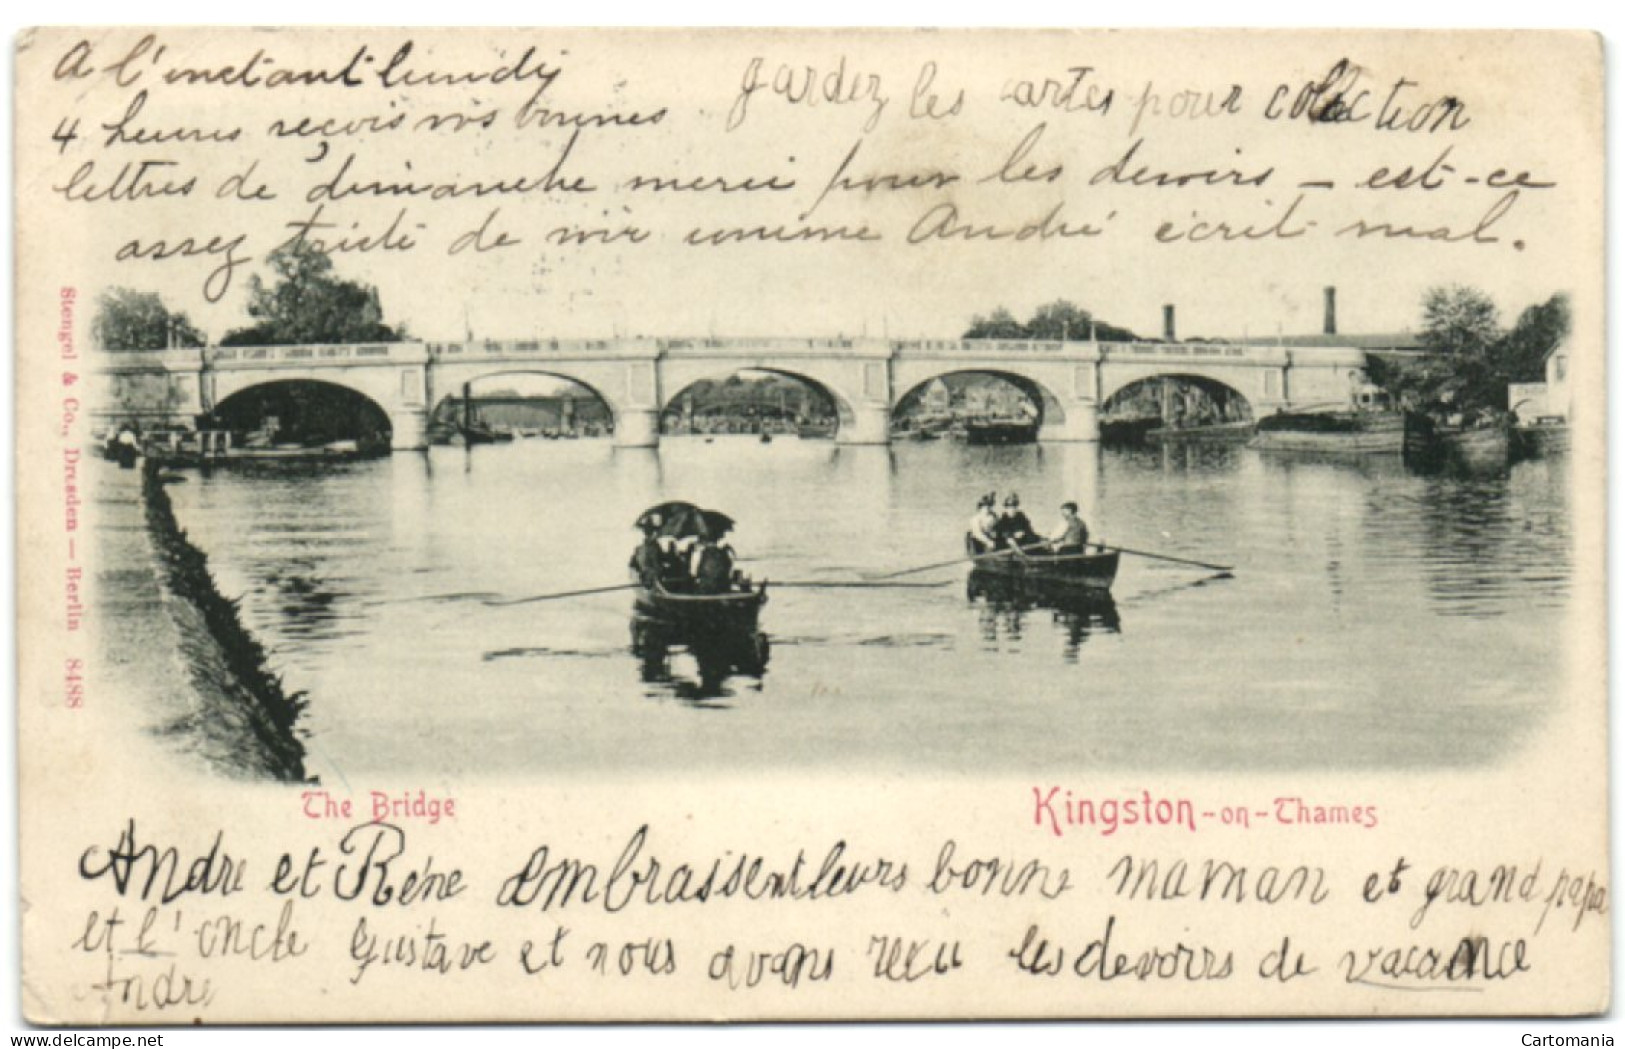 A l'instant lundi
4 heures reçois vos bonnes
gardez les cartes pour colection
lettres de dimanche merci pour les devoirs - est-ce
assez triste de voir comme André écrit mal.
Stengel & Co., Dresden — Berlin 8488
The Bridge
Kingston-on-Thames
Andre et Réne embrassent leurs bonne maman et grand papa
et l'oncle Gustave et nous avons recu les devoirs de vacance
Andre
www.delcampe.net
Cartomania